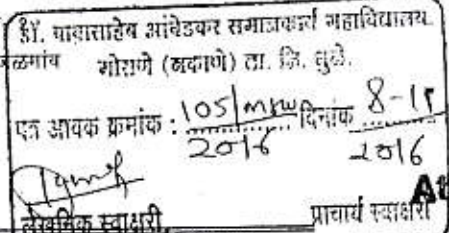 डॉ. बाबासाहेब आंबेडकर समाजकार्य महाविद्यालय.
जळगांव मोराणे (लकाणे) ता. जि. धुळे.
पत्र आवक क्रमांक : 105/msw दिनांक 8-
2016 2016
लेखनिक स्वाक्षरी. प्राचार्य स्वाक्षरी
At